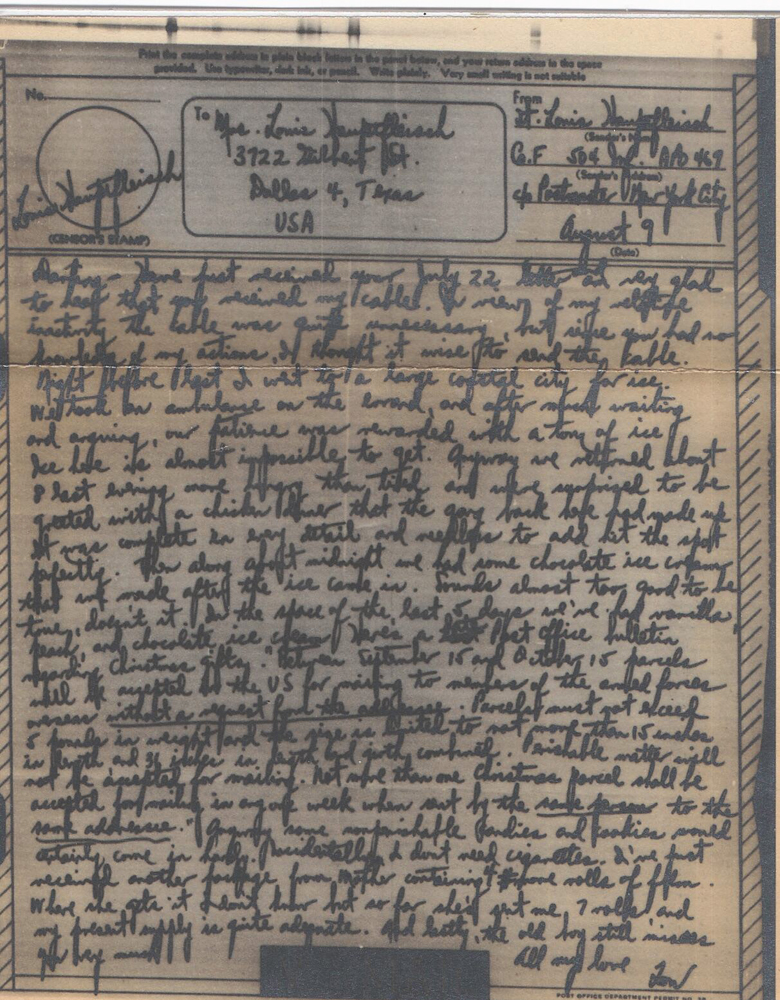 Print the complete address in plain block letters in the panel below, and your return address in the space
provided. Use typewriter, dark ink, or pencil. Write plainly. Very small writing is not suitable
No.
To Mrs. Louis Hauptfleisch
3722 Gilbert St.
Dallas 4, Texas
USA
From
Lt. Louis Hauptfleisch
(Sender's Name)
Co. F 504 Inf. APO 469
(Sender's Address)
c/o Postmaster New York City
August 9
(Date)
Louis Hauptfleisch
(CENSOR'S STAMP)
Darling - Have just received your July 22 letter and very glad
to hear that you received my cable. In view of my relative
inactivity the cable was quite unnecessary, but since you had no
knowledge of my actions, I thought it wise to send the cable.
Night before last I went to a large coastal city for ice.
We took an ambulance on the errand, and after much waiting
and arguing, our patience was rewarded with a ton of ice!
Ice here is almost impossible to get. Anyway we returned about
8 last evening more hungry than tired and were surprised to be
greeted with a chicken dinner that the gang back here had made up
It was complete in every detail and needless to add hit the spot
perfectly. Then along about midnight we had some chocolate ice cream
that we made after the ice came in. Sounds almost too good to be
true, doesn't it. In the space of the last 5 days we've had vanilla,
peach, and chocolate ice cream. Here's a Post Office bulletin
regarding Christmas gifts. "Between September 15 and October 15 parcels
will be accepted in the US for mailing to members of the armed forces
overseas without a request from the addressee. Parcels must not exceed
5 pounds in weight and the size is limited to not more than 15 inches
in length and 36 inches in length and girth combined. Perishable matter will
not be accepted for mailing. Not more than one Christmas parcel shall be
accepted for mailing in any one week when sent by the same person to the
same addressee." Anyway some nonperishable candies and cookies would
certainly come in handy. Incidentally, I don't need cigarettes. I've just
received another package from Mother containing 4 more rolls of film.
Where she gets it I don't know but so far she's sent me 7 rolls and
my present supply is quite adequate. And lastly, the old boy still misses
you very much
All my love
Lou
POST OFFICE DEPARTMENT PERMIT NO.